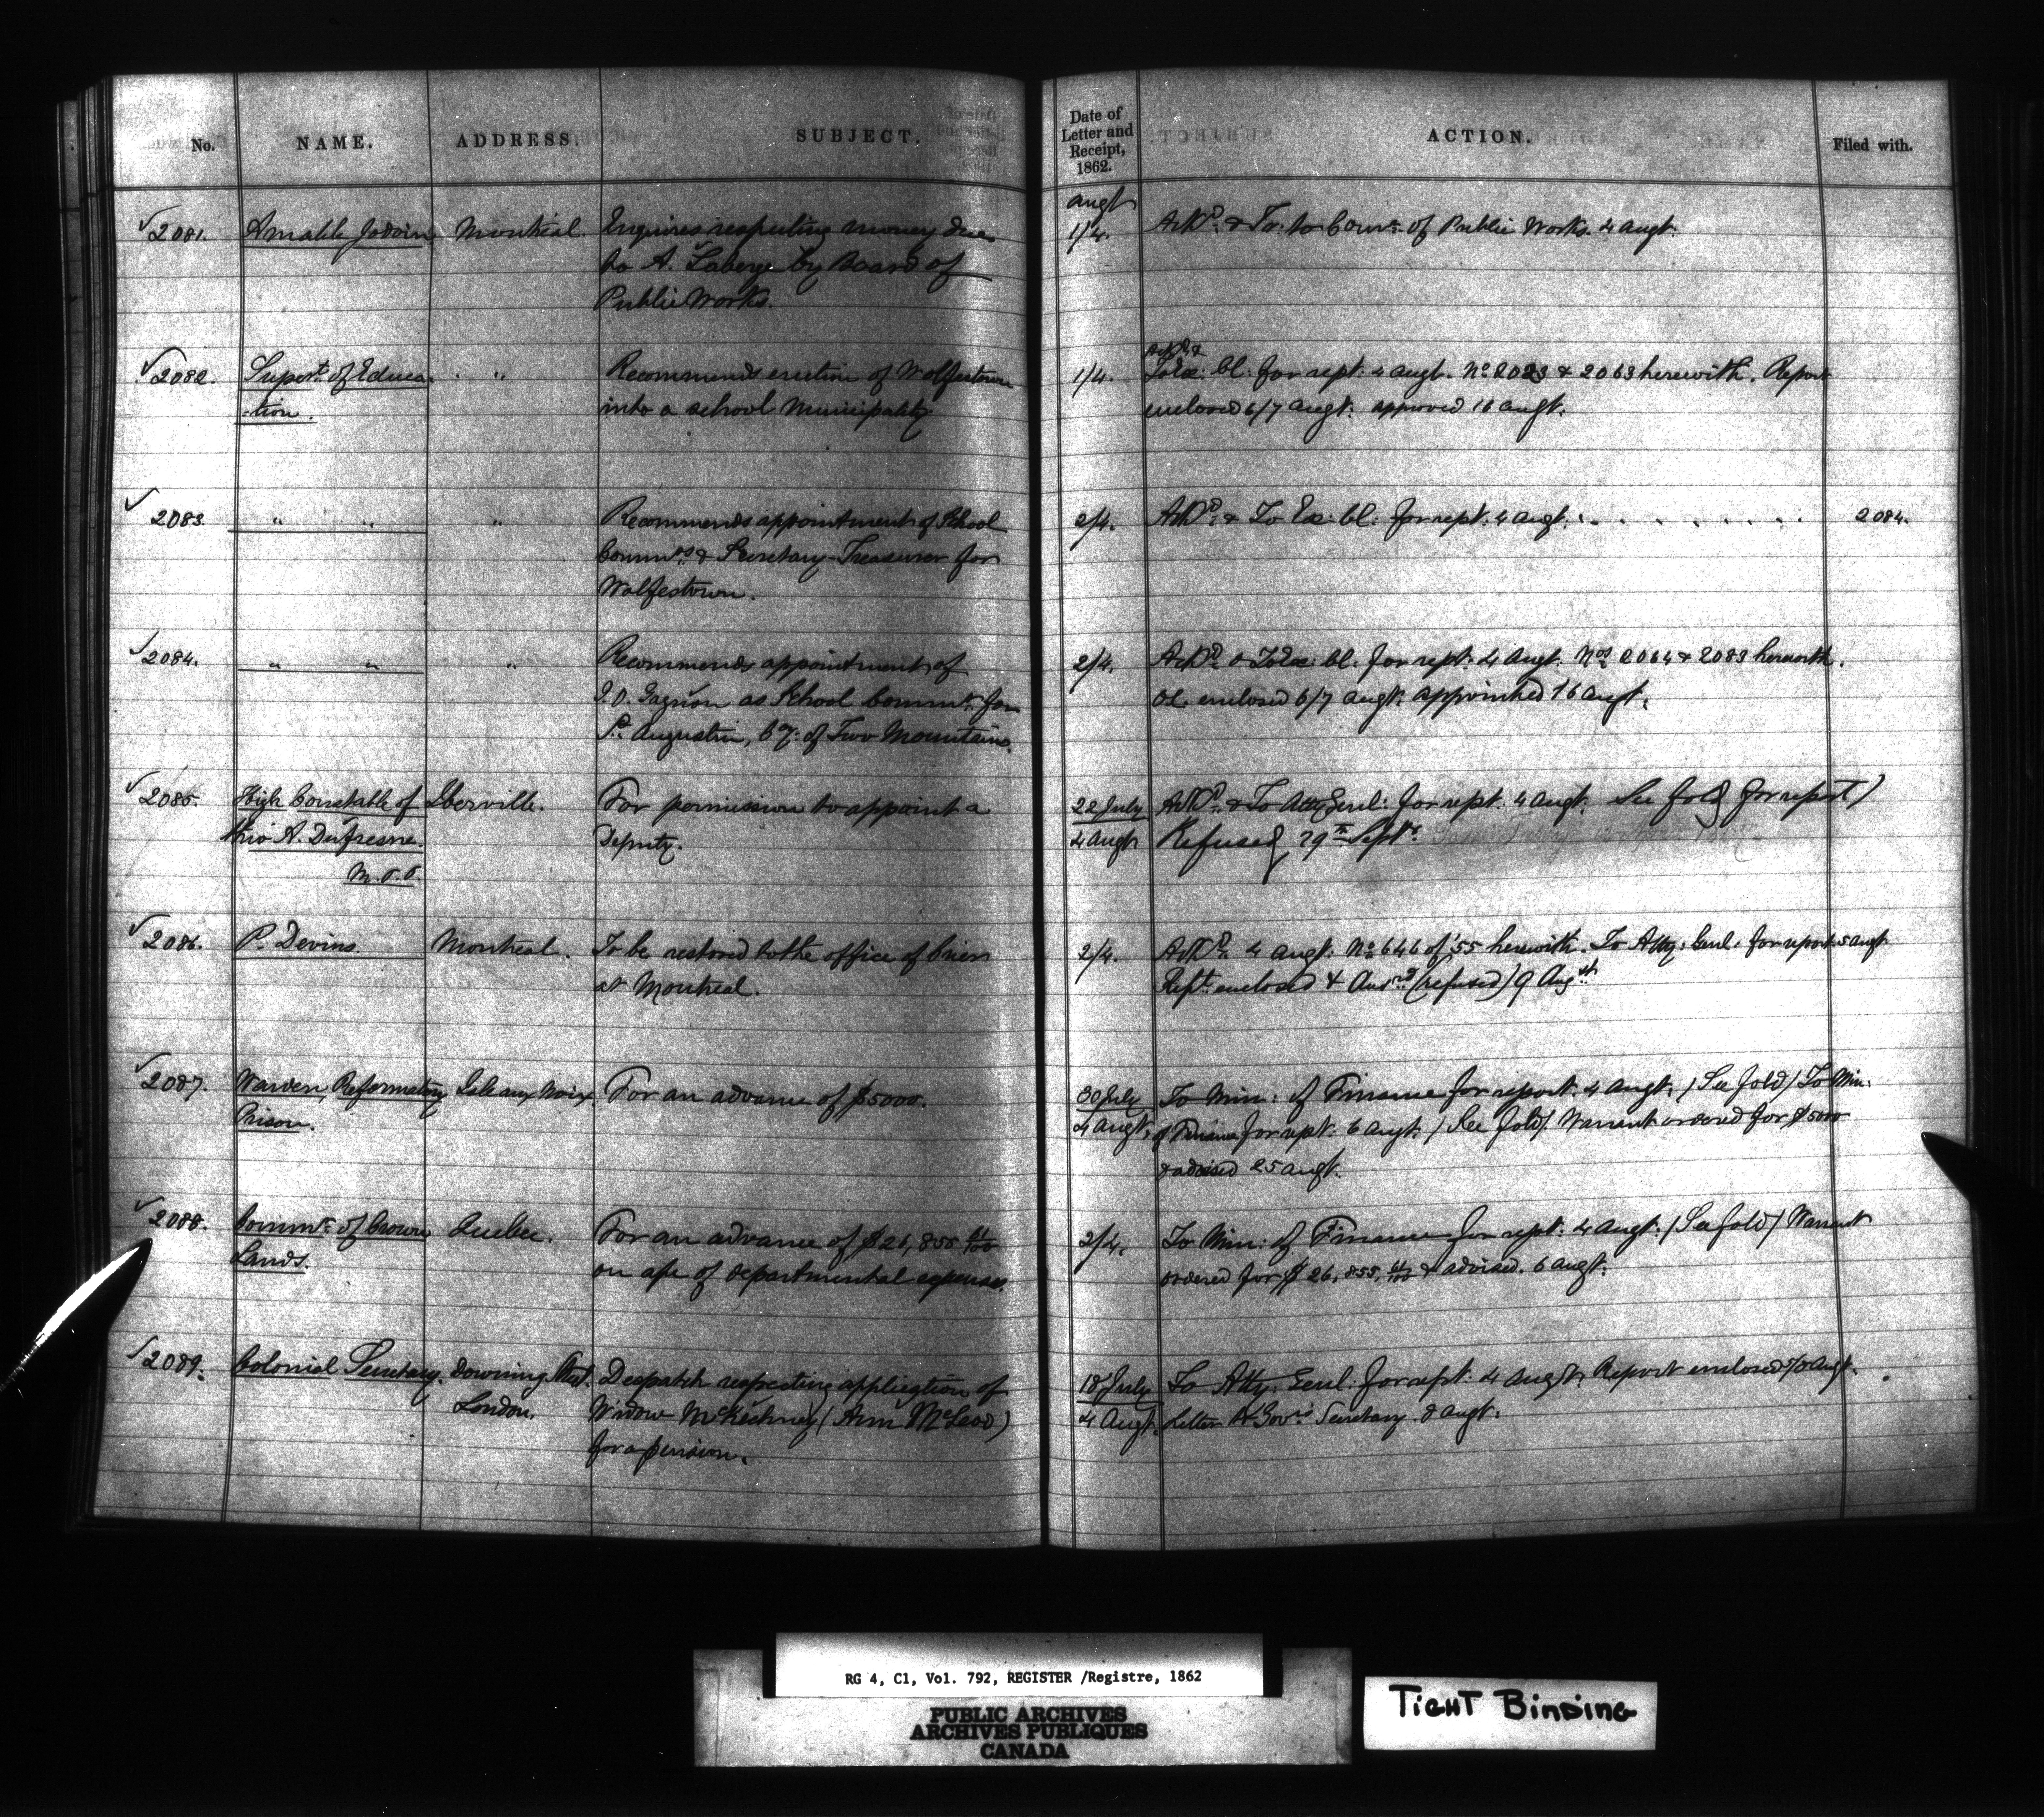 No. NAME. ADDRESS. SUBJECT. Date of Letter and Receipt, 1862. ACTION. Filed with.
augt
2081. Amable Jodoin Montreal. Inquires respecting money due 1/4. Ack.d & To. to Comr. of Public Works. 4 augt.
to A. Laberge by Board of
Public Works.
Ack.d &
2082. Supert. of Educa- " Recommends erection of Wolfestown 1/4. To Ex: Cl: for rept: 4 augt. No. 2023 & 2063 herewith. Report
-tion. into a school Municipality. enclosed 6/7 augt: approved 16 augt.
2083. " " " Recommends appointment of School 2/4. Ackd. & To Ex: Cl: for rept: 4 augt. 2084.
Commrs. & Secretary-Treasurer for
Wolfestown.
2084. " " " Recommends appointment of 2/4. Ackd. & To Ex: Cl: for rept: 4 augt. Nos. 2064 & 2083 herewith.
Gagnon as School Commr. for enclosed 6/7 augt. appointed 16 augt.
St. Augustin, Cy: of Two Mountains.
2085. High Constable of Iberville. For permission to appoint a 22 July Ackd. & To Atty Genl: for rept: 4 augt. See fold for report)
thro A. Dufresne. Deputy. 4 augt Refused 29th Sept.
M.P.P.
2086. P. Devins. Montreal. To be restored to the office of Crier 2/4. Ackd. 4 augt. No. 646 of '55 herewith. To Atty: Genl: for report 5 augt
at Montreal. Rept. enclosed & Ansd. (refused) 9 Augst.
2087. Warden, Reformatory Isle aux Noix. For an advance of $5000. 30 July To Min: of Finance for report. 4 augt. (See fold) To Min:
Prison. 4 augt. of Finance for rept: 6 augt. (See fold) Warrant ordered for $5000
& advised 25 augt.
2088. Commr. of Crown Quebec. For an advance of $26,855 61/100 2/4. To Min: of Finance for rept: 4 augt. (See fold) Warrant
Lands. on a/c of departmental expenses. ordered for $26,855, 61/100 & advised. 6 augt.
2089. Colonial Secretary. Downing Street. Despatch respecting application of 18 July To Atty: Genl: for rept: 4 augt. Report enclosed augt.
London. Widow McKechney (Ann McLeod) 4 Augt. Letter to Govr's Secretary. 8 augt.
for a pension.
RG 4, C1, Vol. 792, REGISTER /Registre, 1862
PUBLIC ARCHIVES
ARCHIVES PUBLIQUES
CANADA
TIGHT BINDING